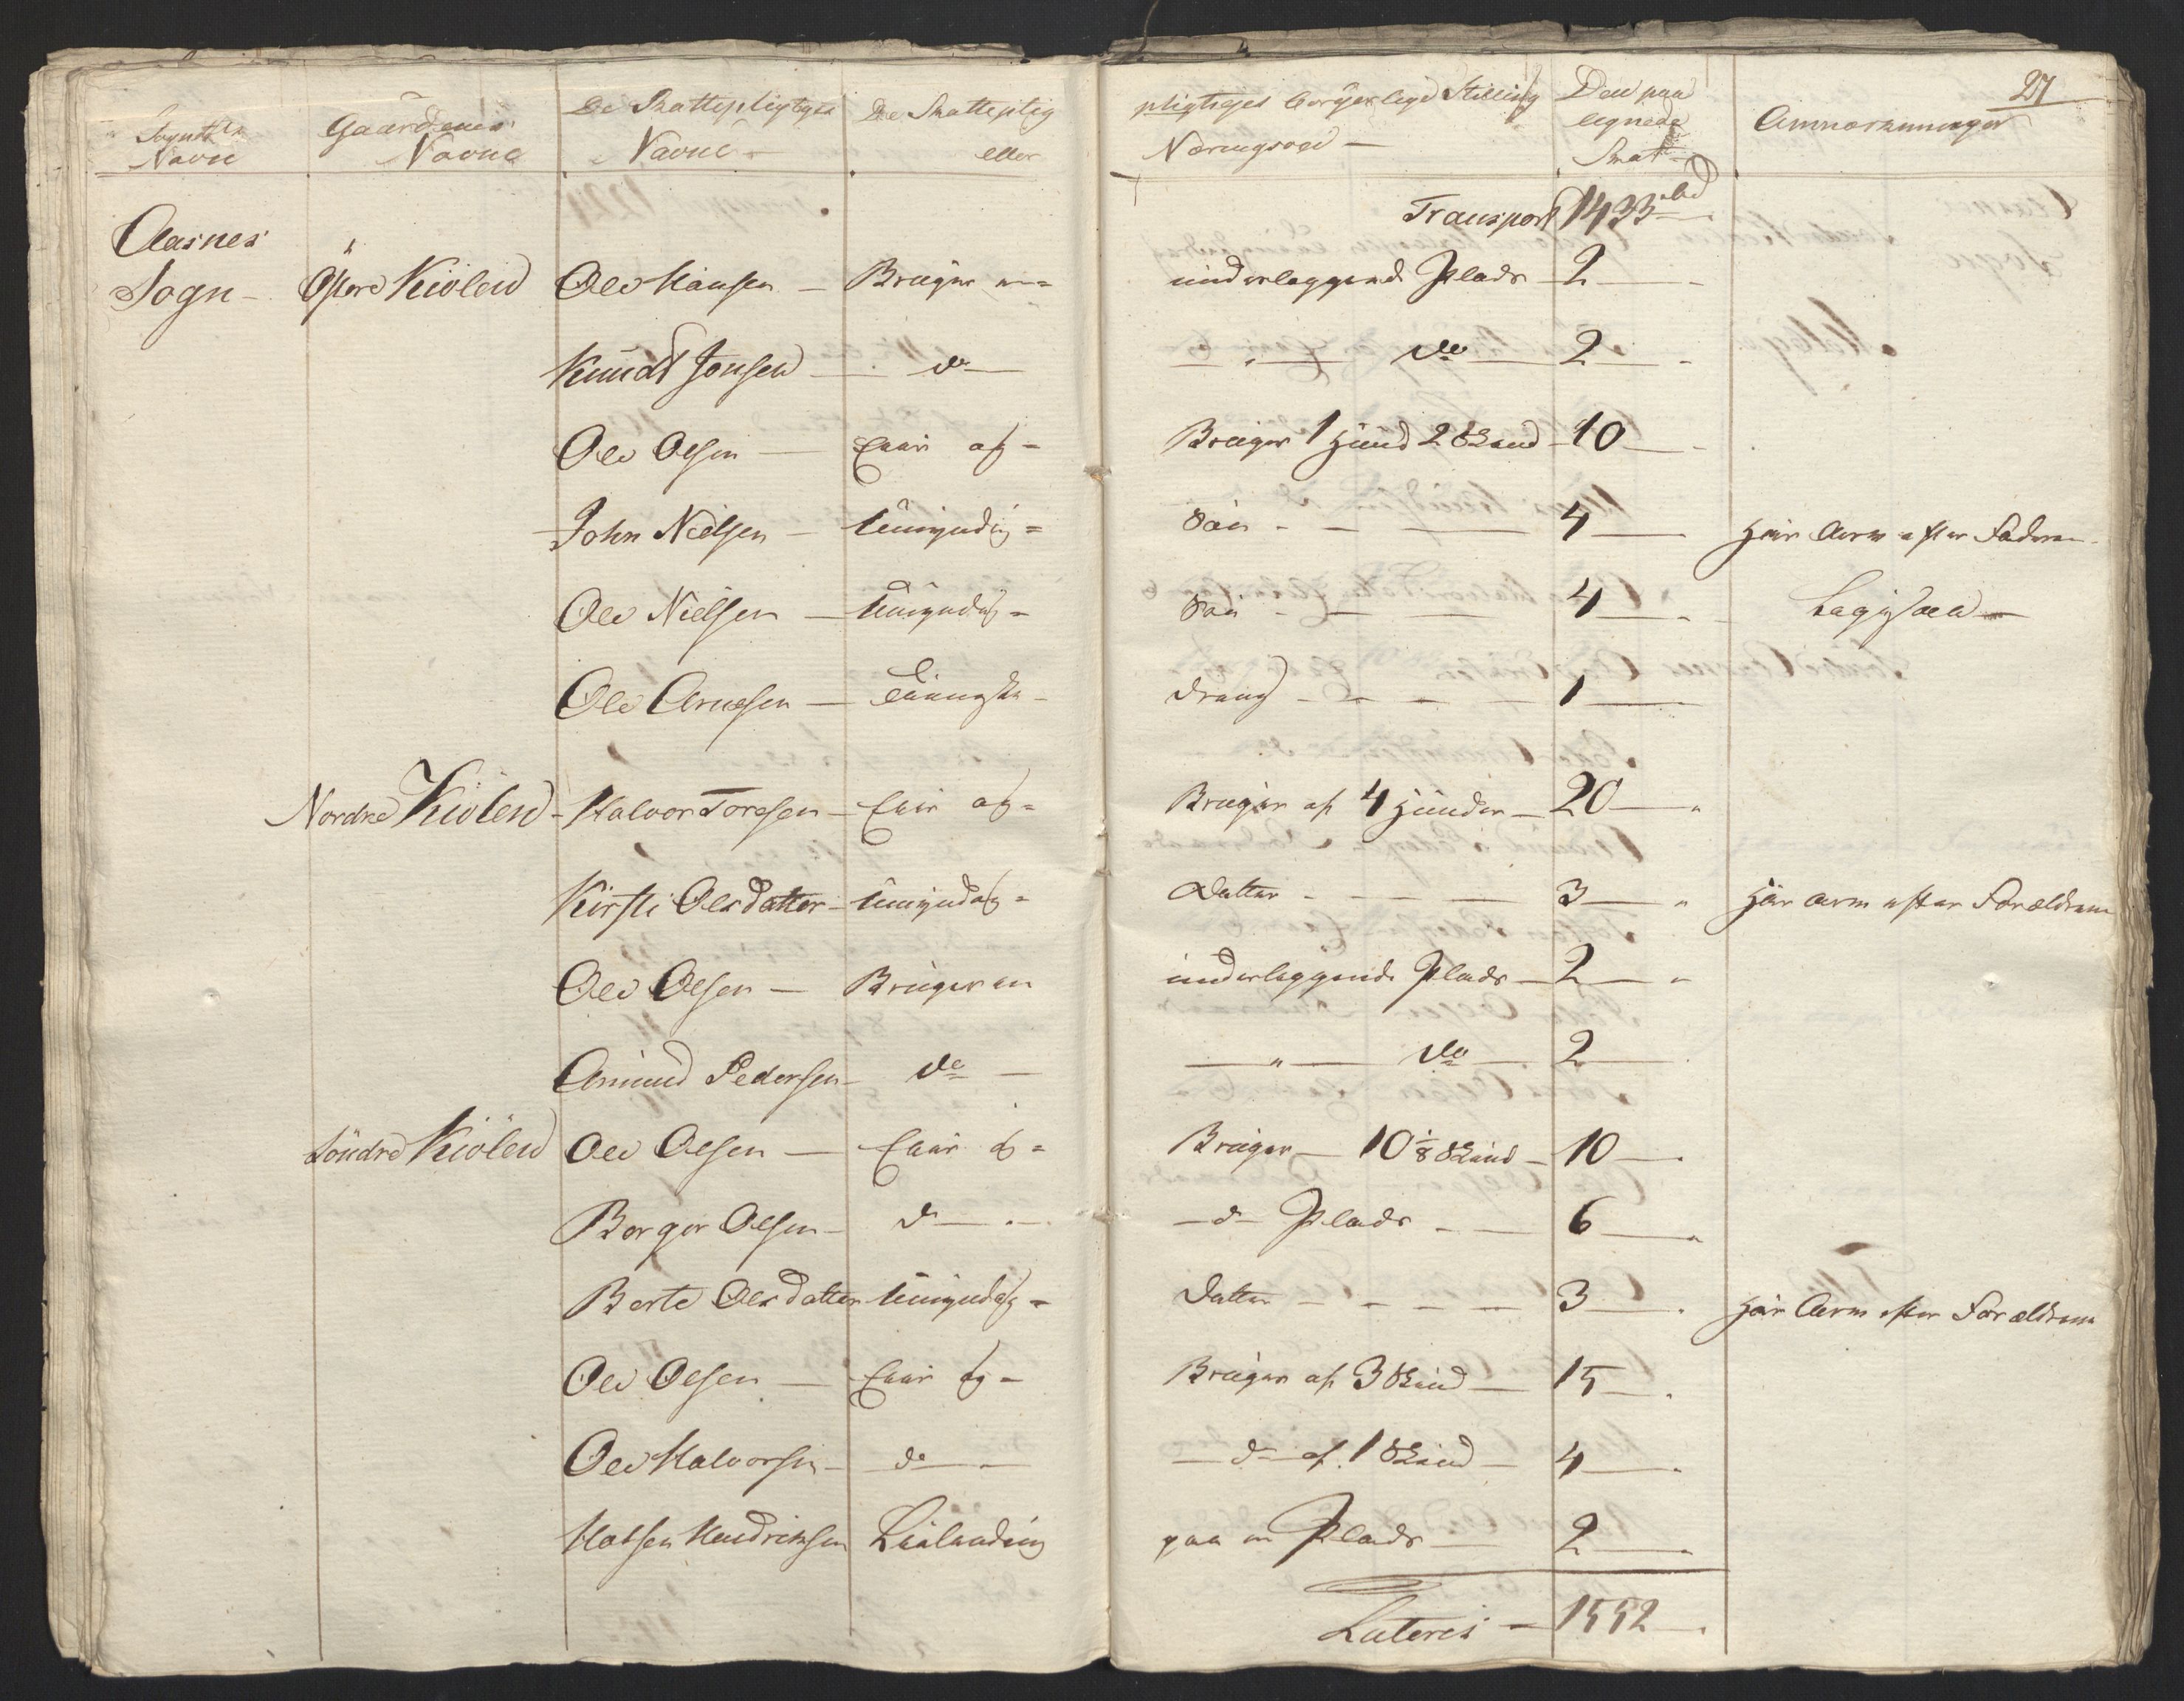 27
Sognets Navn | Gaardenes Navne | De Skattepligtiges Navne | De Skattepligtiges borgerlige Stilling eller Næringsvei | Den paalignede Skat | Anmærkninger
Transport 1433
Aasnes
Sogn - Østre Kiølen Ole Hansen - Bruger en = underliggende Plads - 2
Knudt Jonsen - do - do - 2
Ole Olsen - Eier og = Bruger 1 Hund 2 Skind - 10
John Nielsen - Umyndig = Søn - 4 - Har Arv efter Faderen
Ole Nielsen - Umyndig = Søn - 4
Ole Arnesen - Tieneste - Dreng - 1
Nordre Kiølen - Halvor Toresen - Eier og = Bruger af 4 Hunder - 20
Kirsti Olsdatter - Umyndig = Datter - 3 - Har Arv efter Forældrene
Ole Olsen - Bruger en underliggende Plads - 2
Amund Pedersen - do - do - 2
Søndre Kiølen Ole Olsen - Eier og = Bruger - 10 1/8 Skind - 10
Borger Olsen - do - do Plads - 6
Berte Olsdatter Umyndig = Datter - 3 - Har Arv efter Forældrene
Ole Olsen - Eier og = Bruger af 3 Skind - 15
Ole Halvorsen - do - do af 1 Skind - 4
Halsen Hendrichsen Leilending paa en Plads - 2
Lateris - 1552